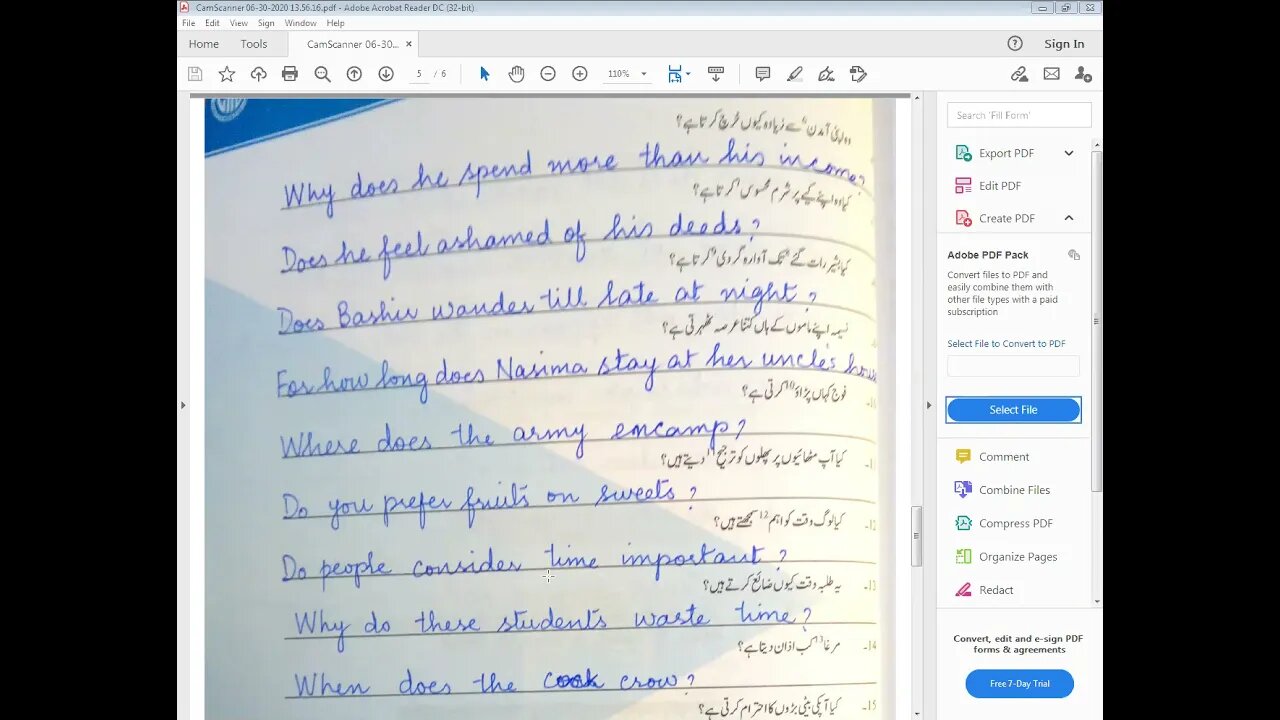 CamScanner 06-30-2020 13.56.16.pdf - Adobe Acrobat Reader DC (32-bit)
File Edit View Sign Window Help
Home Tools CamScanner 06-30... × Sign In
5 / 6 110%
وہ اپنی آمدن سے زیادہ کیوں خرچ کرتا ہے؟
Why does he spend more than his income?
کیا وہ اپنے کیے پر شرم محسوس کرتا ہے؟
Does he feel ashamed of his deeds?
کیا بشیر رات گئے تک آوارہ گردی کرتا ہے؟
Does Bashir wander till late at night?
نسیمہ اپنے ماموں کے ہاں کتنا عرصہ ٹھہرتی ہے؟
For how long does Nasima stay at her uncle's hous
فوج کہاں پڑاؤ10 کرتی ہے؟
Where does the army encamp?
-11 کیا آپ مٹھائیوں پر پھلوں کو ترجیح11 دیتے ہیں؟
Do you prefer fruits on sweets?
-12 کیا لوگ وقت کو اہم12 سمجھتے ہیں؟
Do people consider time important?
-13 یہ طلبہ وقت کیوں ضائع کرتے ہیں؟
Why do these students waste time?
-14 مرغا13 کب اذان دیتا ہے؟
When does the cock crow?
-15 کیا آپکی بیٹی بڑوں کا احترام کرتی ہے؟
Search 'Fill Form'
Export PDF
Edit PDF
Create PDF
Adobe PDF Pack
Convert files to PDF and
easily combine them with
other file types with a paid
subscription
Select File to Convert to PDF
Select File
Comment
Combine Files
Compress PDF
Organize Pages
Redact
Convert, edit and e-sign PDF
forms & agreements
Free 7-Day Trial